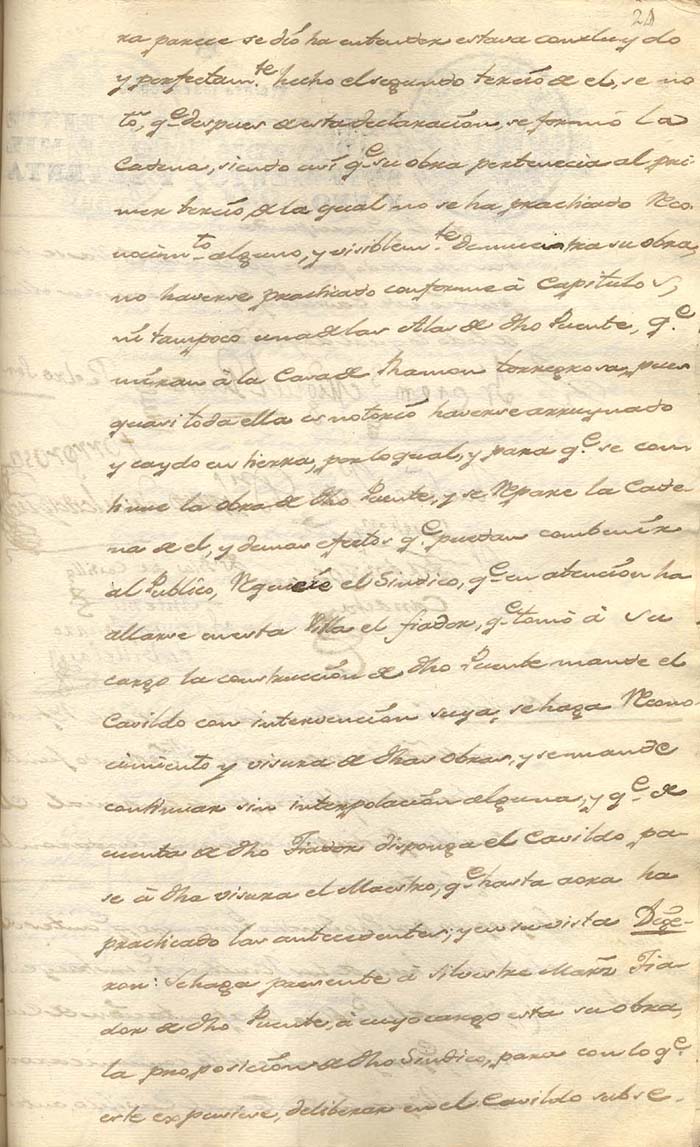 24
ra parece se dió ha entender estava concluydo
y perfectamte. hecho el segundo tercio de el, se no
tó, qe. despues de esta declaración, se formó la
Cadena, siendo así qe. su obra pertenecia al pri-
mer tercio, de la qual no se ha practicado Reco-
nocimto. alguno, y visiblemte. demuestra su obra,
no haverse practicado conforme à Capitulos,
ni tampoco una de las Alas de dho Puente, qe.
miran à la Casa de Ramon torregrosa, pues
quasi toda ella es notorio haverse arruynado
y caydo en tierra, por lo qual, y para qe. se con
tinue la obra de dho Puente, y se Repare la Cade
na de el, y demas efectos qe. puedan combenir
al Publico, Requeie el Sindico, qe. en atención ha
allarse en esta Villa el fiador, qe. tomó à su
cargo la construcción de dho Puente mande el
Cavildo con intervención suya, se haga Recono
cimiento y visura de dhas obras, y se mande
continuar sin interpolación alguna, y qe. de
cuenta de dho Fiador disponga el Cavildo, pa-
se à dha visura el Maestro, qe. hasta aora ha
practicado las antecedentes; y en su vista Dixe-
ron: Se haga presente à Silvestre Marz. Fia-
dor de dho Puente, à cuyo cargo esta su obra,
la proposición de dho Sindico, para con lo qe.
este expusiese, deliberar en el Cavildo subse-